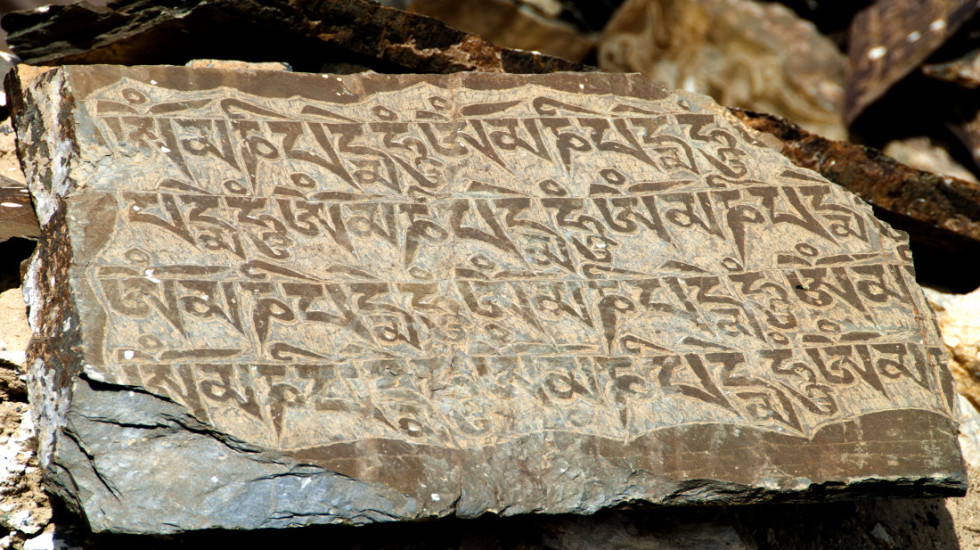 ཨོཾམཎིཔདྨེཧཱུྃཨོཾམཎིཔདྨེཧཱུྃ
པདྨེཧཱུྃཨོཾམཎིཔདྨེཧཱུྃཨོཾམཎིཔདྨེ
ཨོཾམཎིཔདྨེཧཱུྃཨོཾམཎིཔདྨེཧཱུྃཨོཾམ
ཨོཾམཎིཔདྨེཧཱུྃཨོཾམཎིཔདྨེཧཱུྃཨོཾམ